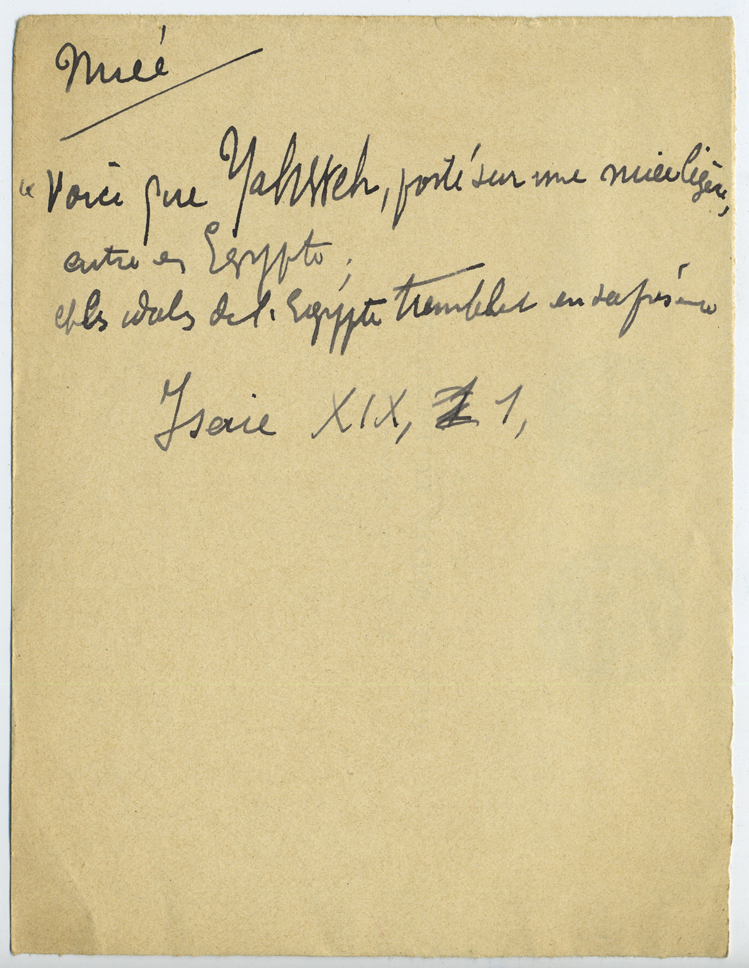 Nueé
"Voici que Yahweh, porté sur une nuée légère,
entre en Egypte ;
et les idoles de l'Egypte tremblent en sa présence
Isaie XIX, 1,